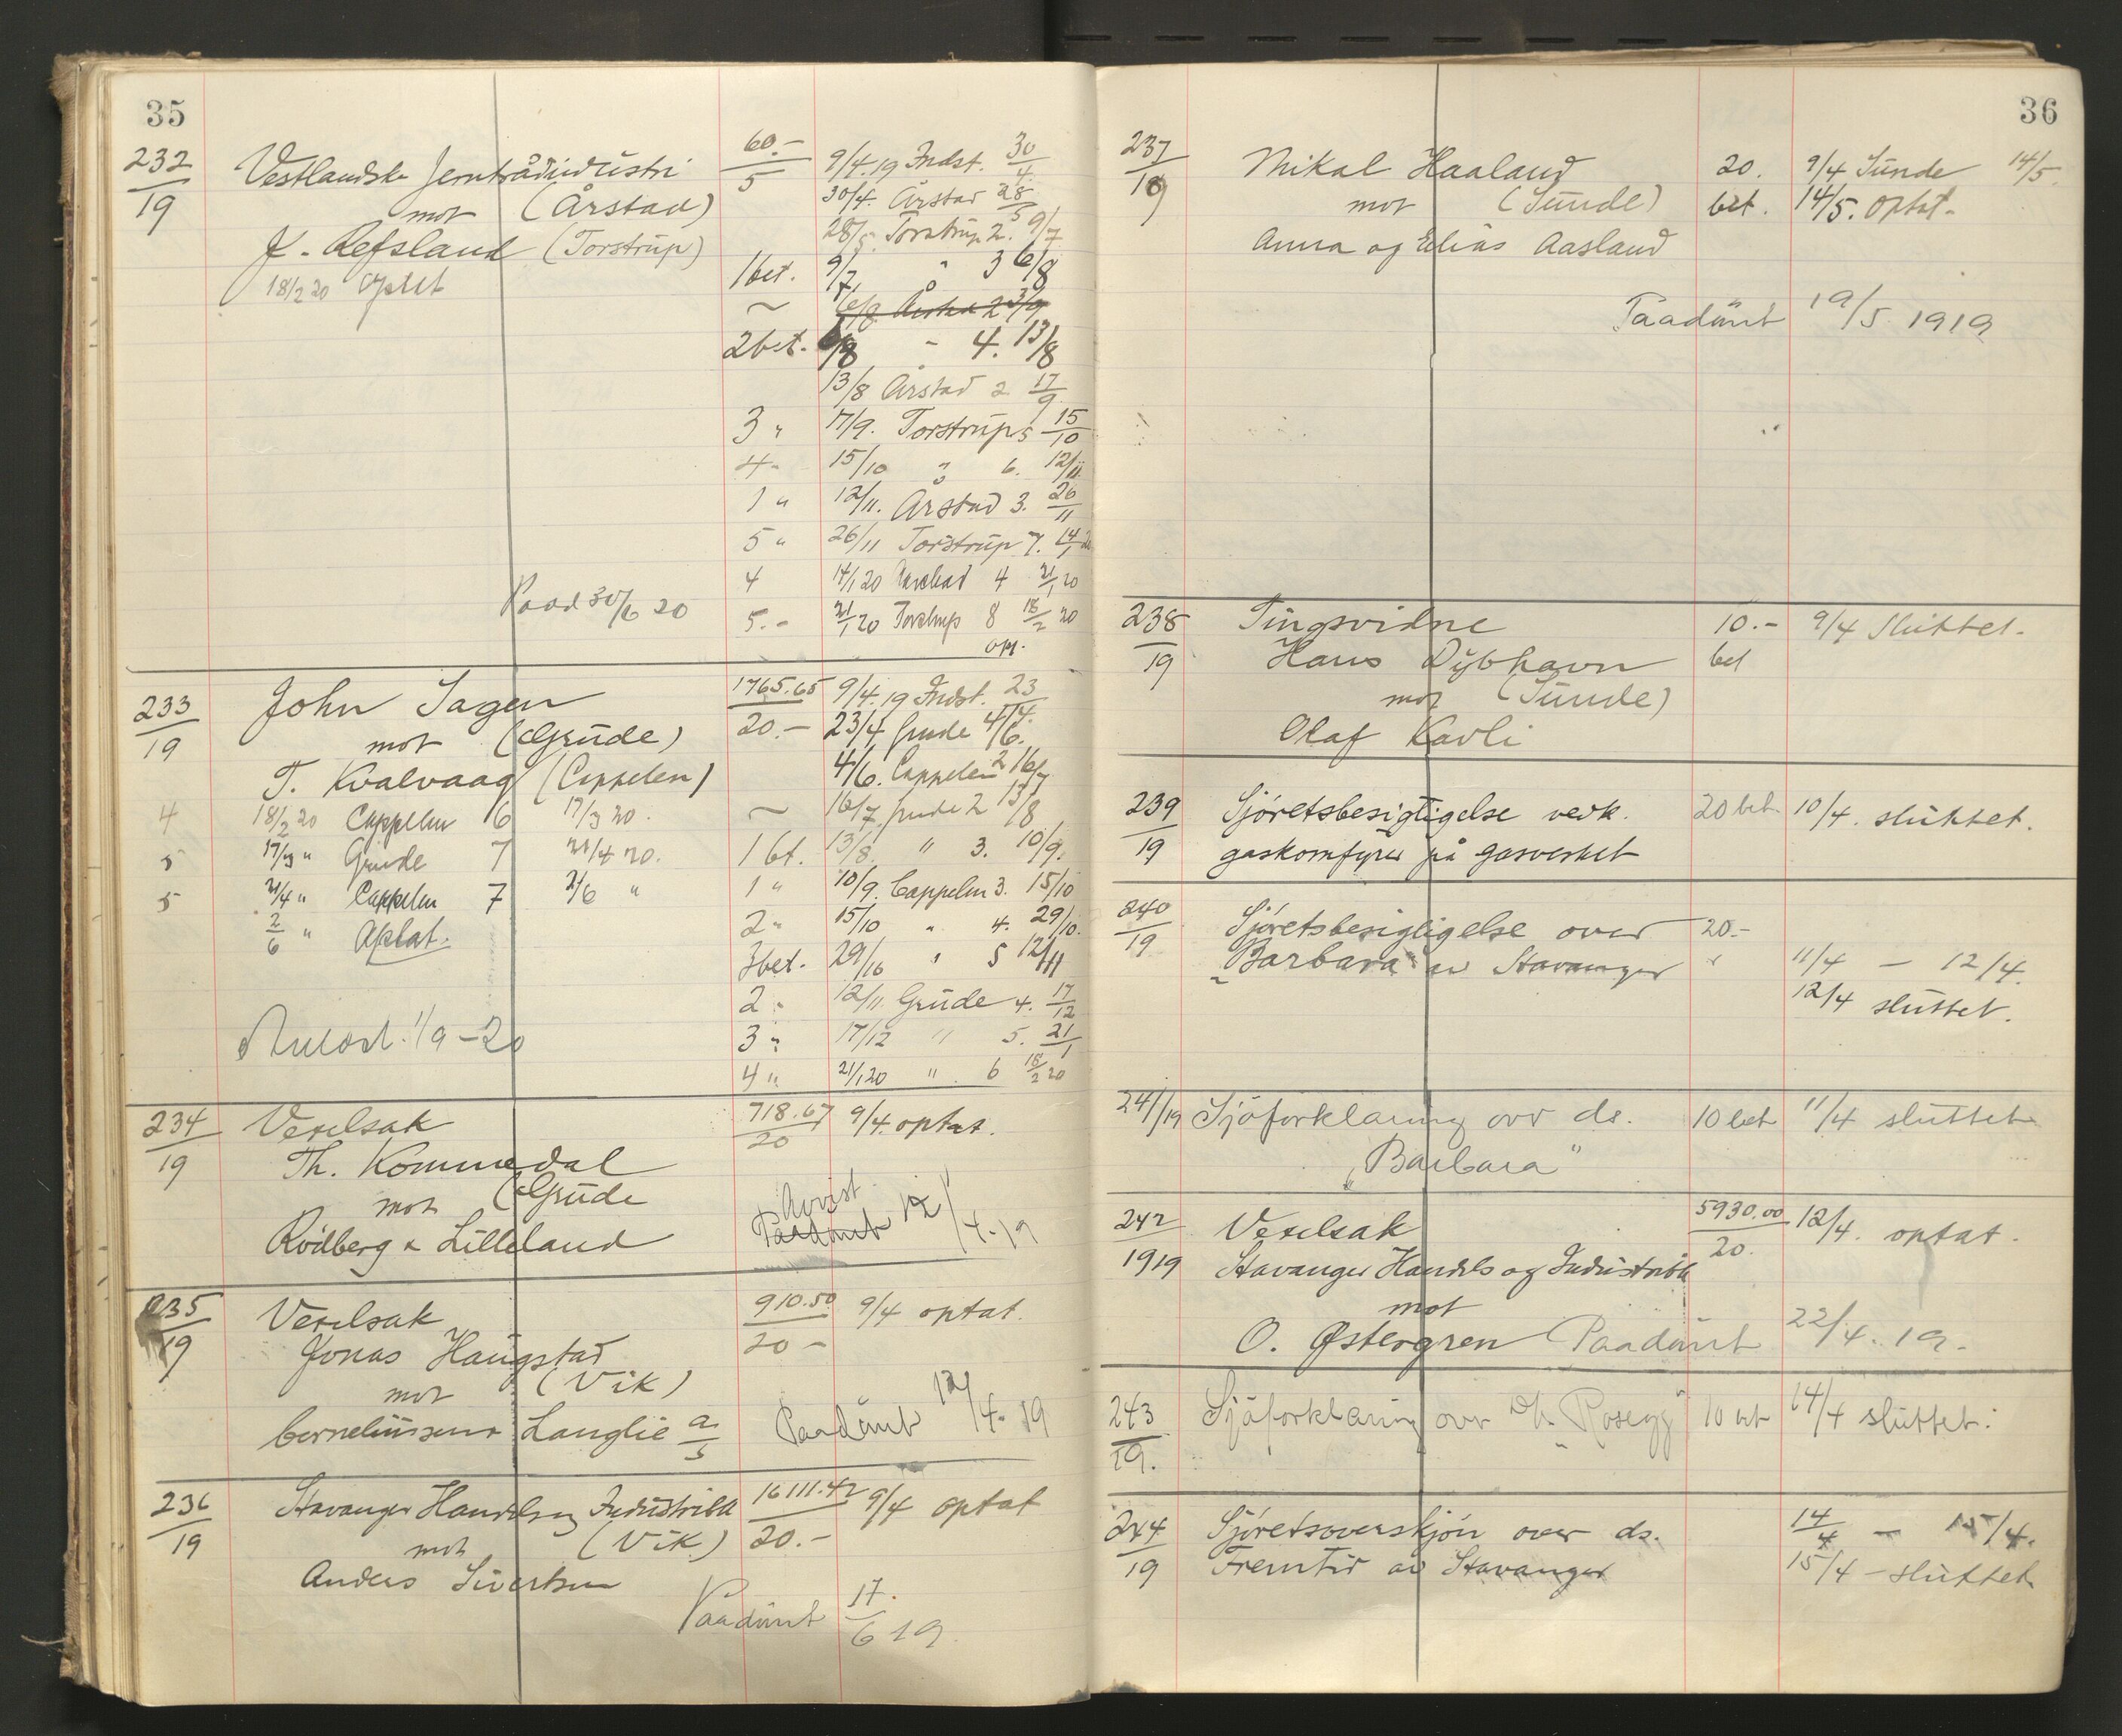 35
232/19 Vestlandske Jerntrådindustri 60.-/5 9/4.19 Indst. 30/4.
mot (Årstad) 30/4. Årstad 28/5
J. Refsland (Torstrup) 28/5. Torstrup 2. 9/7
18/2 20 optat 1 bet. 9/7, " 3 6/8
~ 6/8 Årstad 2 3/9
2 bet. 6/8 " 4. 13/8
13/8 Årstad 2 17/9
3 " 17/9. Torstrup 5 15/10
4 " 15/10 " 6. 12/11.
1 " 12/11. Årstad 3. 26/11
5 " 26/11 Torstrup 7. 14/1 20
4 14/1 20 Aarstad 4 21/1 20
Paad 30/6 20 5.- 21/1 20 Torstrup 8 18/2 20
opt.
233/19 John Sagen 1765.65/20.- 9/4.19 Indst. 23/4.
mot (Grude) 23/4 Grude 4/6.
T. Kvalvaag (Cappelen) 4/6. Cappelen 2 16/7
4 18/2 20 Cappelen 6 17/3 20. ~ 16/7 Grude 2 13/8
5 17/3 " Grude 7 21/4 20. 1 bt. 13/8. " 3. 10/9.
5 21/4 " Cappelen 7 2/6 " 1 " 10/9. Cappelen 3. 15/10
2/6 " Optat. 2 " 15/10 " 4. 29/10.
3 bet. 29/10 " 5 12/11
2 " 12/11. Grude 4. 17/12
1/9-20 3 " 17/12 " 5. 21/1
4 " 21/1 20 " 6 18/2 20
234/19 Vexelsak 718.67/20 9/4. optat.
Th. Kommedal
mot (Grude Avvist
Rödberg & Lilleland Paadömt 12/4-19
235/19 Vexelsak 910.50/20- 9/4 optat.
Jonas Haugstad
mot (Vik)
Corneliussen Langlie a/s Paadömt 12/4-19
236/19 Stavanger Handels og Industribk 16111.42/20.- 9/4 optat
mot (Vik)
Anders Sivertsen
Paadömt 17/6 19.
36
237/19 Mikal Haaland 20. 9/4 Sunde 14/5.
mot (Sunde) bet. 14/5. optat.
Anna og Elias Aasland
Paadömt 19/5 1919
238/19 Tingsvidne 10.- 9/4 Sluttet.
Hans Dybhavn bet
mot (Sunde)
Olaf Kavli
239/19 Sjöretsbesigtigelse vedk. 20 bet 10/4. sluttet.
gaskomfyrer på gasverket
240/19 Sjöretsbesigtigelse over 20.-
"Barbara" av Stavanger " 11/4 - 12/4.
12/4 sluttet.
241/19 Sjöforklaring over ds. 10 bet 11/4 sluttet
"Barbara"
242/1919 Vexelsak 5930.00/20. 12/4. optat.
Stavanger Handels og Industribk
mot
O. Østergren Paadömt 22/4. 19.
243/19. Sjöforklaring over D/s "Rosegg" 10 bet 14/4 sluttet.
244/19 Sjöretsoverskjön over ds. 14/4 - 15/4.
Fremtid av Stavanger 15/4 - sluttet